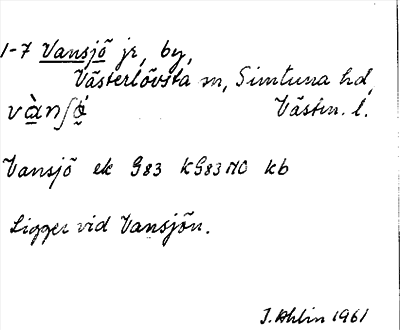 1-7 Vansjö jr, by,
Västerlövsta sn, Simtuna hd,
Västm. l.
Vansjö ek G83 KG83NO kb
Ligger vid Vansjön.
J. Ahlin 1961